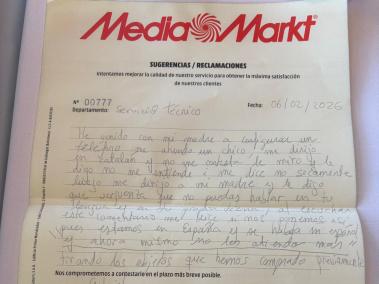 MediaMarkt
SUGERENCIAS / RECLAMACIONES
Intentamos mejorar la calidad de nuestro servicio para obtener la máxima satisfacción
de nuestros clientes
Nº 00777
Departamento: Servicio Técnico Fecha: 06/02/2026
He venido con mi madre a configurar un
teléfono, me atiende un chico, me dirijo
en Catalán y no me contesta le miro y le
digo no me entiende i me dice no secamente
luego me dirijo a mi madre y le digo
que verguenza que no puedas hablar en tu
al escuchar
este comentario me dice si nos ponemos así
pues estamos en España y se habla en español
y ahora mismo no los atiendo más
tirando los objetos que hemos comprado previamente
Nos comprometemos a contestarle en el plazo más breve posible.